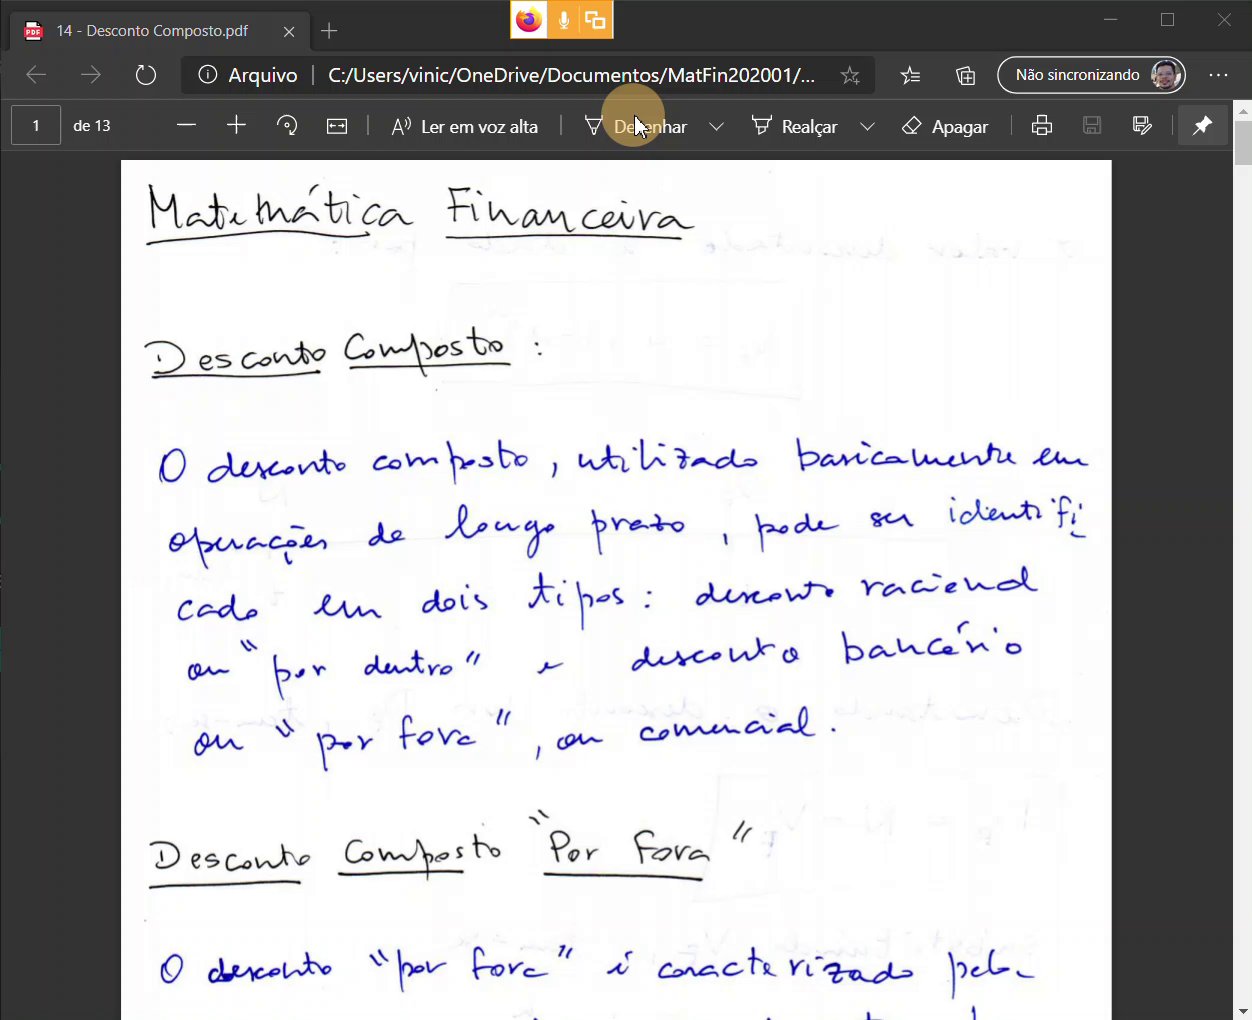 14 - Desconto Composto.pdf
Arquivo C:/Users/vinic/OneDrive/Documentos/MatFin202001/... Não sincronizando
1 de 13 Ler em voz alta Desenhar Realçar Apagar
Matemática Financeira
Desconto Composto :
O desconto composto, utilizado basicamente em
operações de longo prazo, pode ser identifi
cado em dois tipos: desconto racional
ou "por dentro" e desconto bancário
ou "por fora", ou comercial.
Desconto Composto "Por Fora"
O desconto "por fora" é caracterizado pela